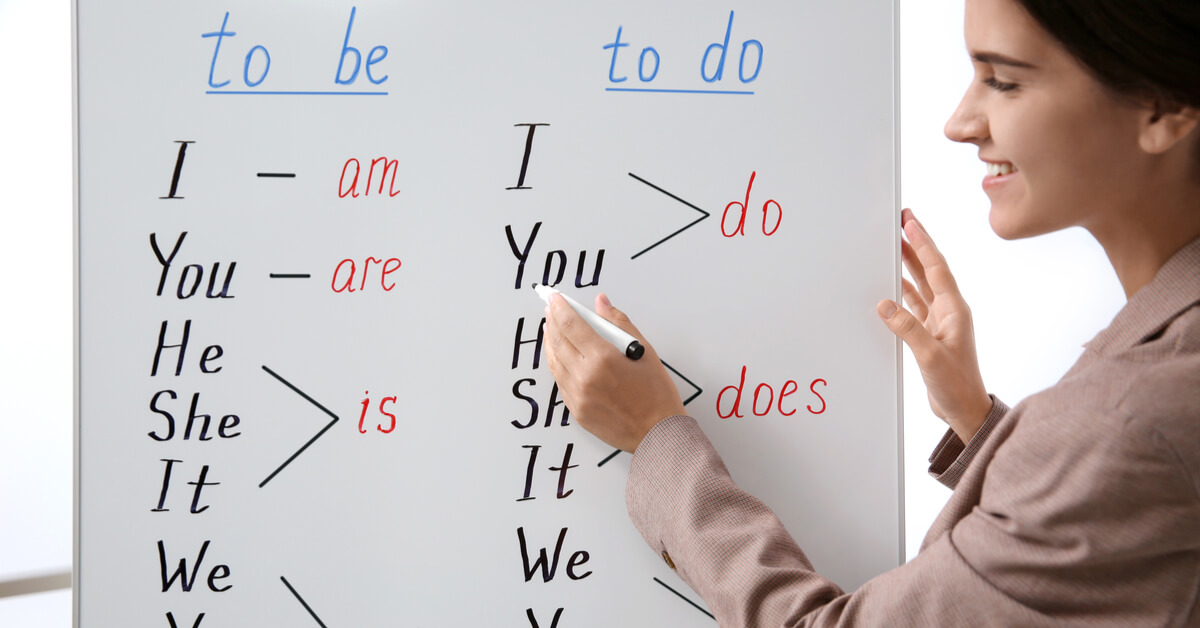 to be
I – am
You – are
He
She
It
is
We
to do
I
You
do
It
does
We